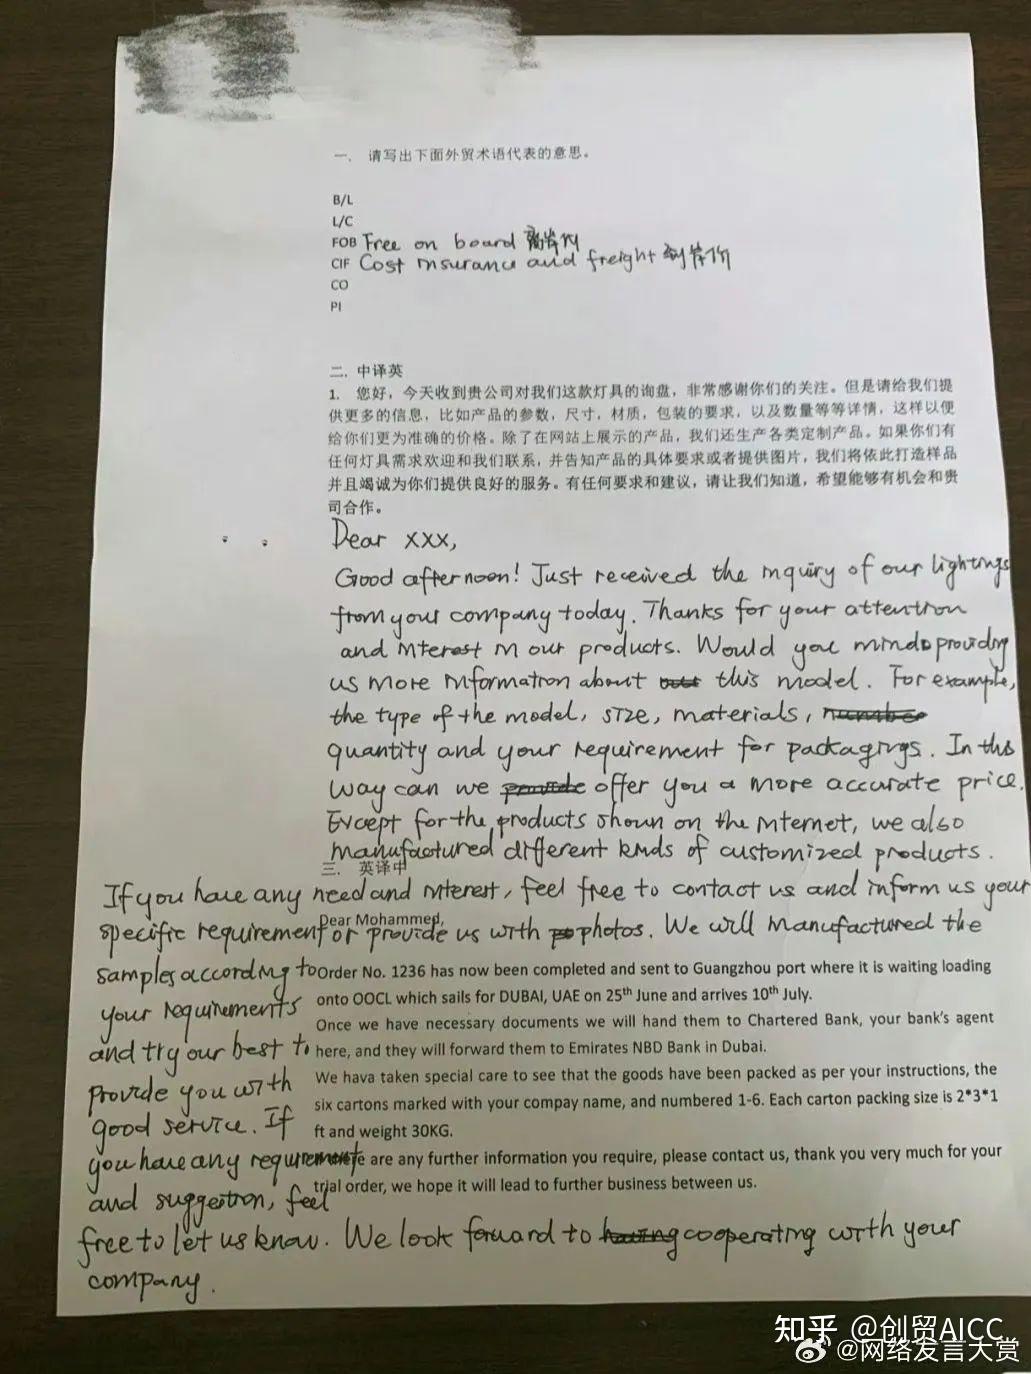 一. 请写出下面外贸术语代表的意思。
B/L
L/C
FOB Free on board 离岸价
CIF Cost insurance and freight 到岸价
CO
PI
二. 中译英
1. 您好，今天收到贵公司对我们这款灯具的询盘，非常感谢你们的关注。但是请给我们提
供更多的信息，比如产品的参数，尺寸，材质，包装的要求，以及数量等等详情，这样以便
给你们更为准确的价格。除了在网站上展示的产品，我们还生产各类定制产品。如果你们有
任何灯具需求欢迎和我们联系，并告知产品的具体要求或者提供图片，我们将依此打造样品
并且竭诚为你们提供良好的服务。有任何要求和建议，请让我们知道，希望能够有机会和贵
司合作。
Dear xxx,
Good afternoon! Just received the inquiry of our lightings
from your company today. Thanks for your attention
and interest in our products. Would you mind providing
us more information about this model. For example,
the type of the model, size, materials,
quantity and your requirement for packagings. In this
way can we offer you a more accurate price.
Except for the products shown on the internet, we also
manufactured different kinds of customized products.
三. 英译中
If you have any need and interest, feel free to contact us and inform us your
Dear Mohammed,
specific requirement or provide us with photos. We will manufactured the
samples according to
your requirements
and try our best to
provide you with
good service. If
you have any requirement
and suggestion, feel
free to let us know. We look forward to cooperating with your
company.
Order No. 1236 has now been completed and sent to Guangzhou port where it is waiting loading
onto OOCL which sails for DUBAI, UAE on 25th June and arrives 10th July.
Once we have necessary documents we will hand them to Chartered Bank, your bank's agent
here, and they will forward them to Emirates NBD Bank in Dubai.
We hava taken special care to see that the goods have been packed as per your instructions, the
six cartons marked with your compay name, and numbered 1-6. Each carton packing size is 2*3*1
ft and weight 30KG.
are any further information you require, please contact us, thank you very much for your
trial order, we hope it will lead to further business between us.
知乎 @创贸AICC
@网络发言大赏